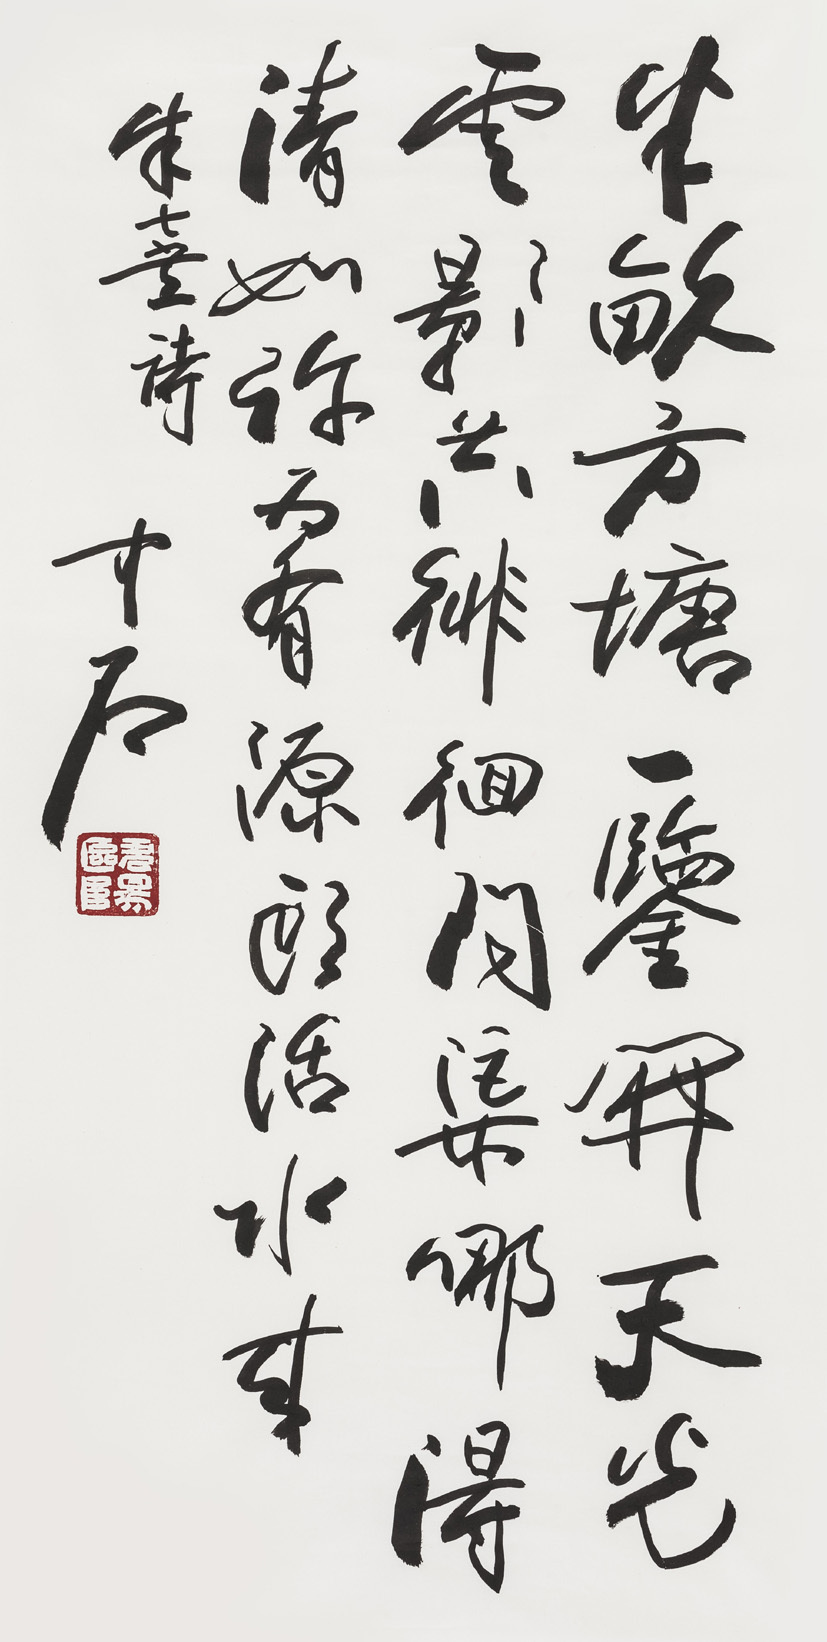 半畝方塘一鑒開天光
雲影共徘徊問渠哪得
清如許为有源頭活水來
朱熹詩
中石